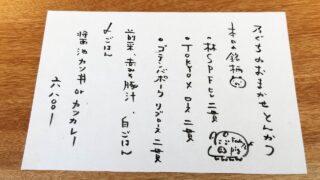 おまかせとんかつ
本日の銘柄
・林SPF ヒレ 二貫
・TOKYO X ロース 二貫
・ゴテンバポーク リブロース 二貫
前菜、赤みそ豚汁、白ごはん
〆ごはん
醤油カツ丼 or カツカレー
六八〇〇ー